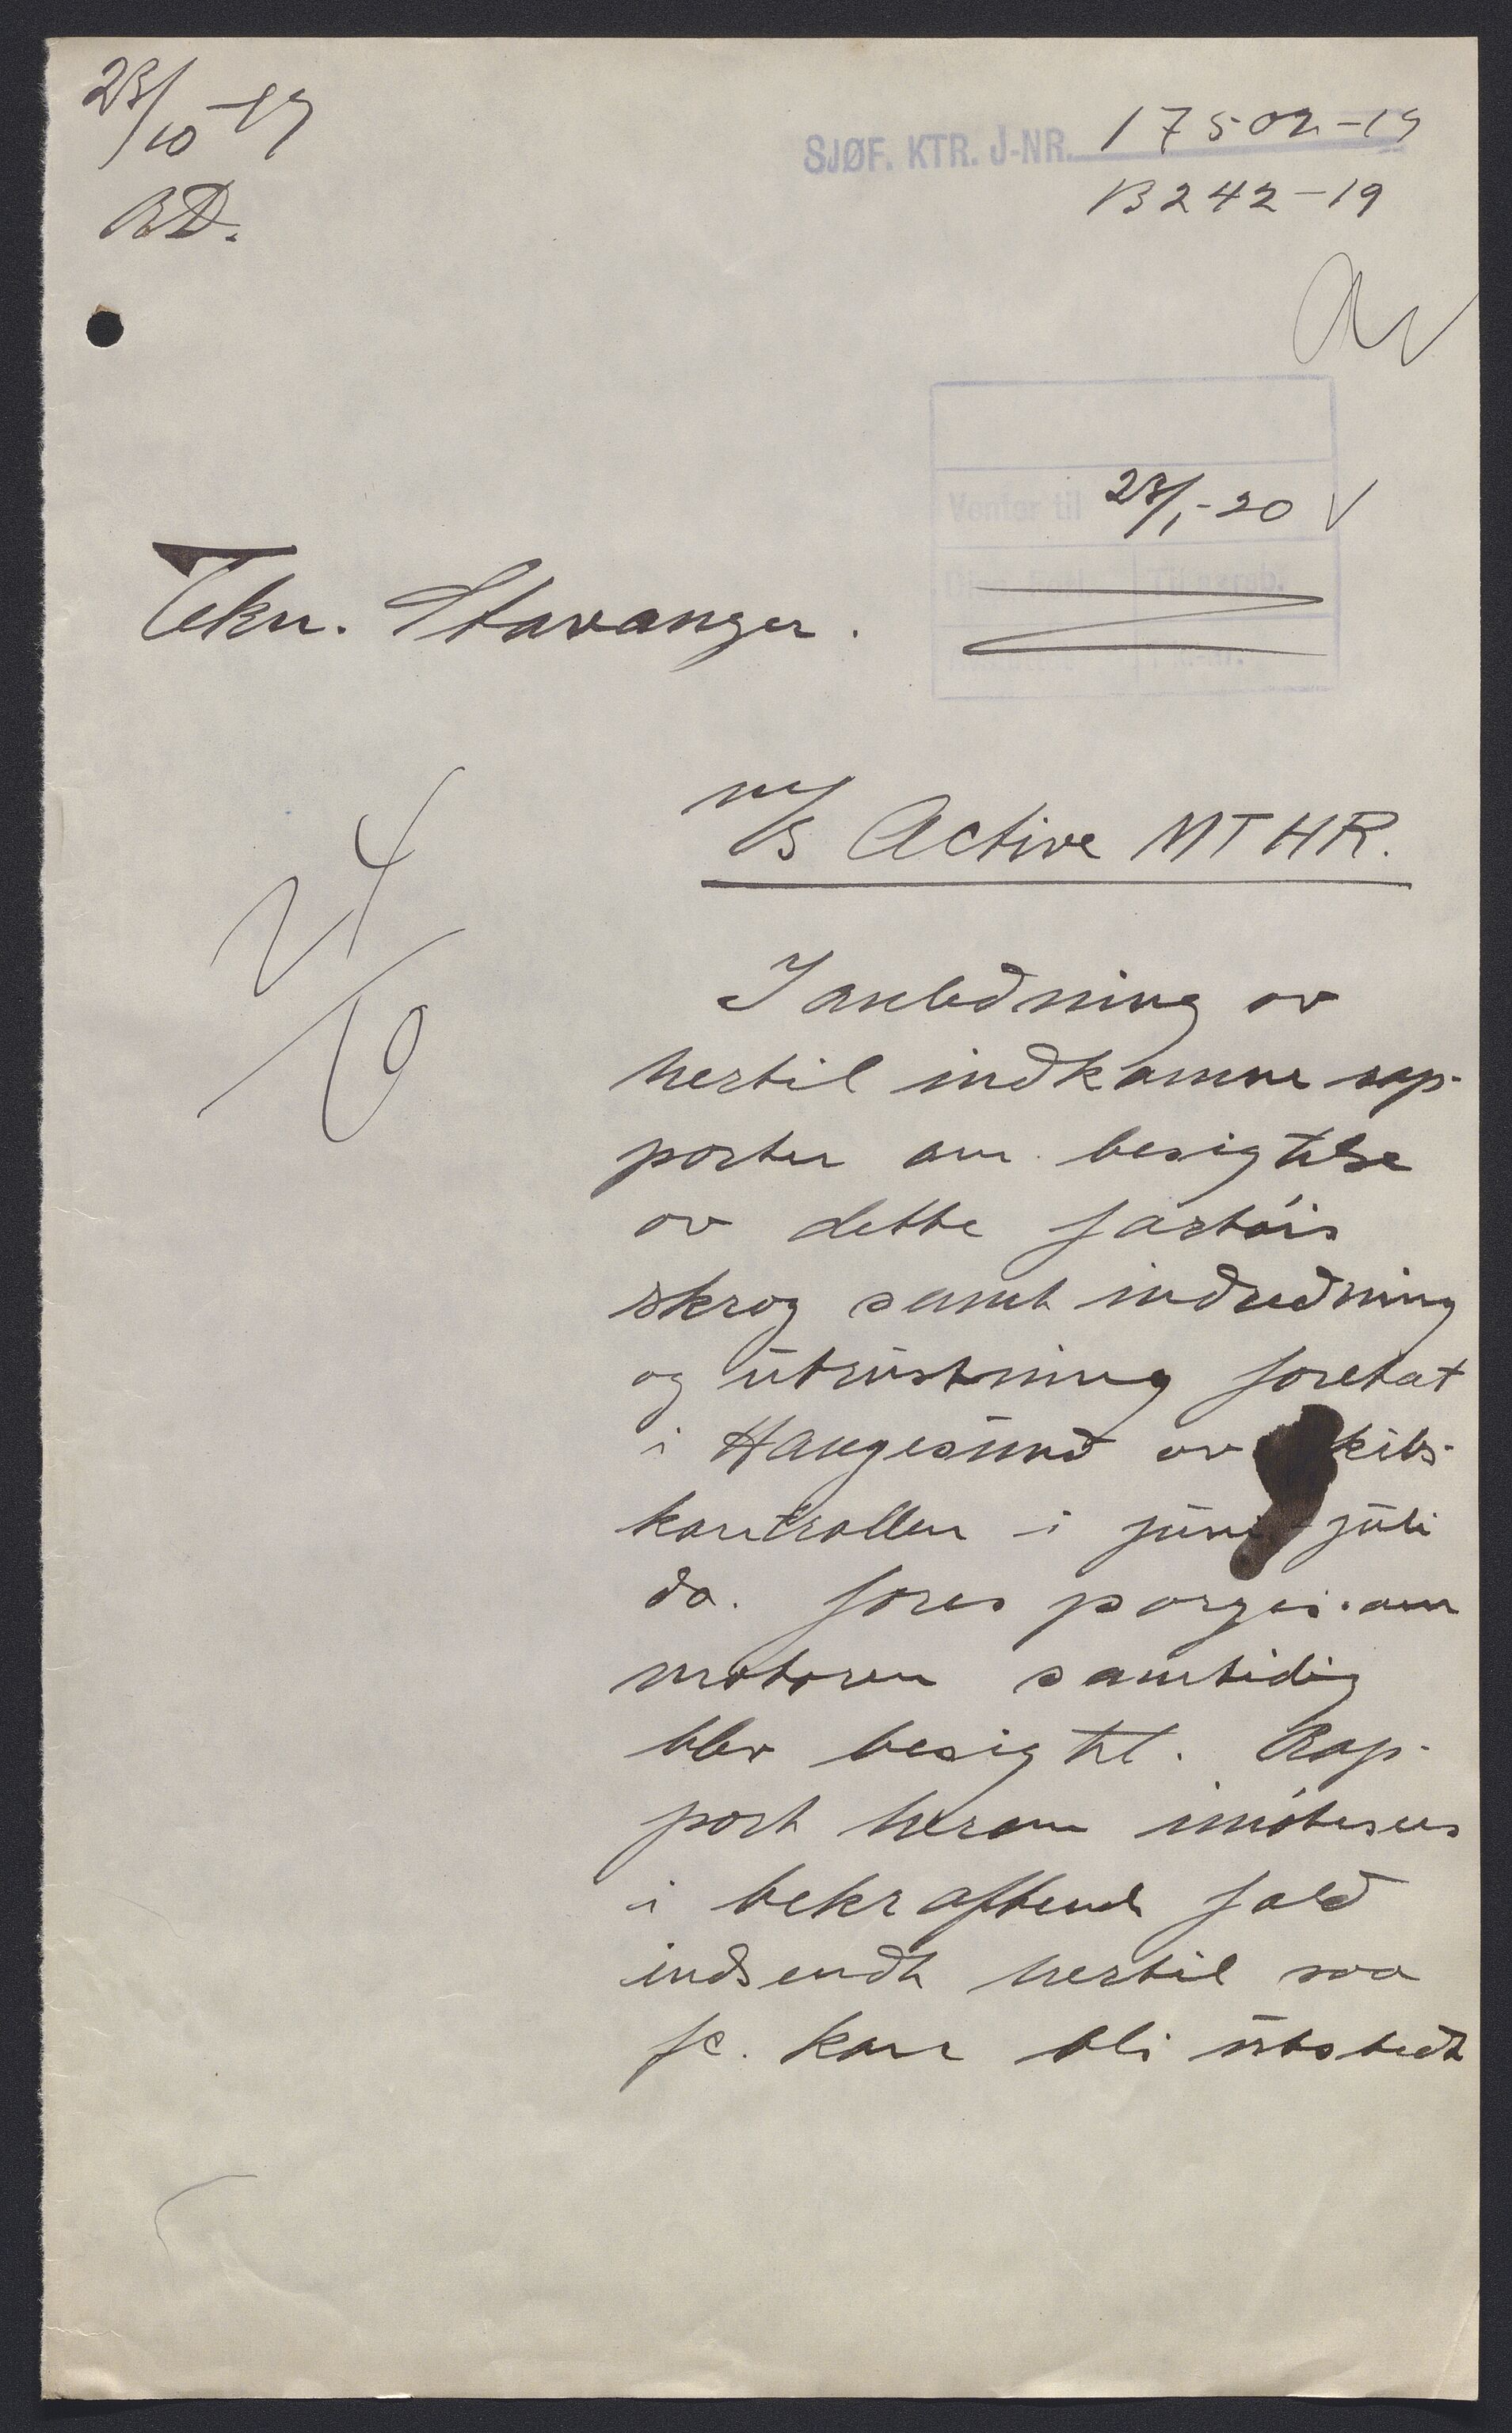 23/10-19
SJØF. KTR. J-NR. 17502-19
B242-19
BD.
Venter til 23/1-20
Tekn. Stavanger.
m/s Active MTHR.
24/10
I anledning av
hertil indkomne rap-
porter om besigtelse
av dette fartøis
skrog samt indredning
og utrustning foretat
i Haugesund av skibs-
kontrollen i juni-juli
da. forespørges om
motoren samtidig
blev besigtet. Rap-
port herom imøtesees
i bekræftende fald
indsendt hertil saa
fc. kan bli utstedt